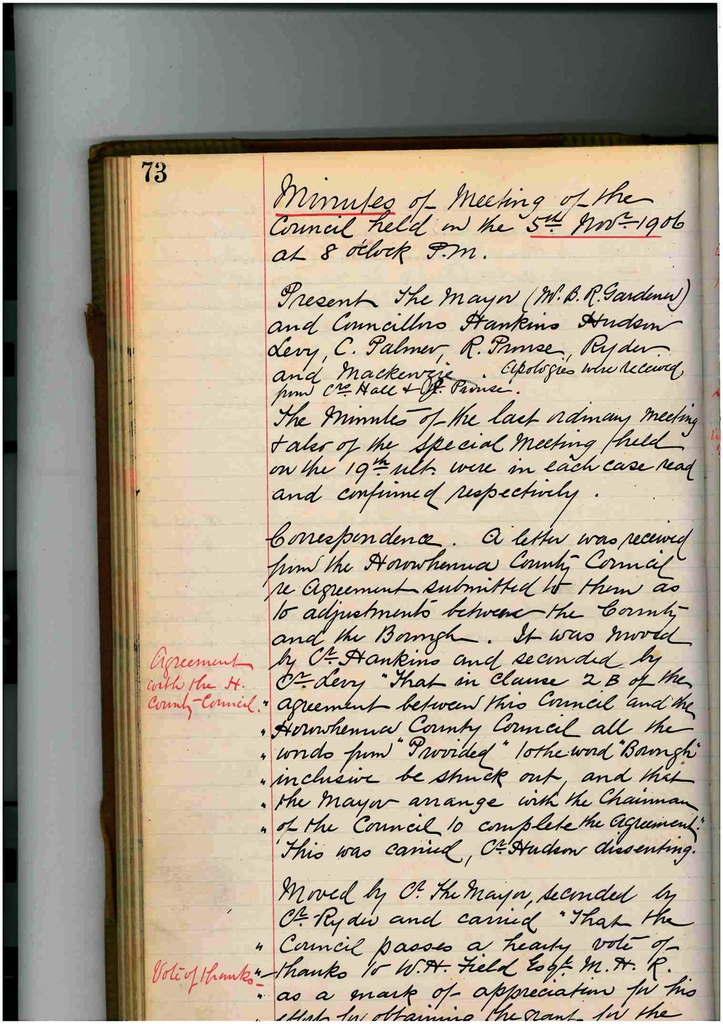 73
Minutes of Meeting of the
Council held on the 5th Novr 1906
at 8 oclock P.m.
Present The Mayor (Mr. B. R. Gardener)
and Councillors Hankins Hudson
Levy, C. Palmer, R. Prouse, Ryder
and Mackenzie. Apologies were received
from Crs Hall & Prouse.
The Minutes of the last ordinary meeting
& also of the special Meeting held
on the 19th ult. were in each case read
and confirmed respectively.
Correspondence. A letter was received
from the Horowhenua County Council
re Agreement submitted to them as
to adjustments between the County
and the Borough. It was moved
Agreement
with the H.
County Council.
by Cr. Hankins and seconded by
Cr. Levy "That in clause 2B of the
" agreement between this Council and the
" Horowhenua County Council all the
" words from "Provided" to the word "Borough"
" inclusive be struck out, and that
" the Mayor arrange with the Chairman
" of the Council to complete the Agreement."
This was carried, Cr. Hudson dissenting.
Moved by Cr. The Mayor, seconded by
Cr. Ryder and carried "That the
" Council passes a hearty vote of
Vote of thanks
" thanks to W. H. Field Esqr. M. H. R.
" as a mark of appreciation for his
effort for obtaining the grant for the